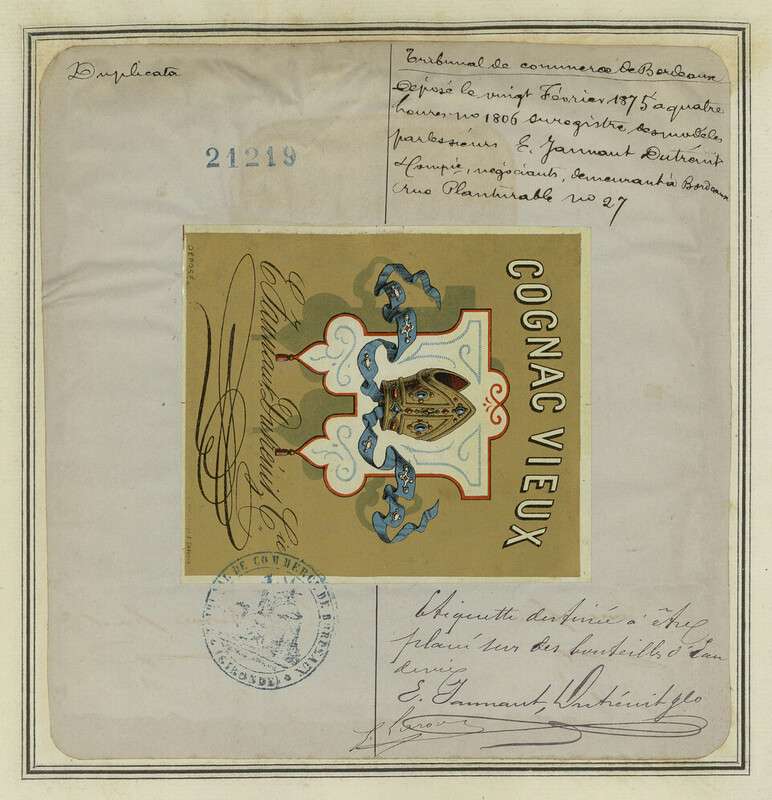 Duplicata
21219
Tribunal de commerce de Bordeaux
déposé le vingt Février 1875 a quatre
heures no 1806 du registre des modèles
par les sieurs E. Jannaut Dutrénit
& Compie, négociants, demeurant à Bordeaux
rue Planturable no 27
COGNAC VIEUX
E. Jannaut Dutrénit & Cie
DÉPOSÉ
TRIBUNAL DE COMMERCE DE BORDEAUX
(GIRONDE)
Etiquette destinée à être
placée sur des bouteilles d'Eau
de vie
E. Jannaut, Dutrénit & Co